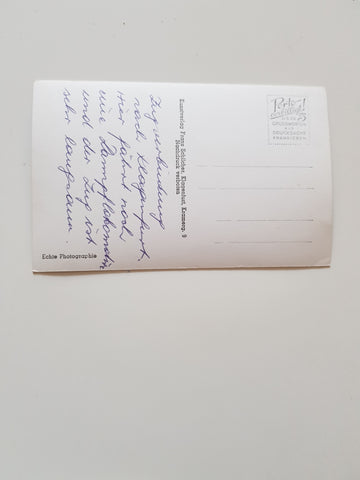 Zugverbindung
nach Klagenfurt.
Hier fährt noch
eine Dampflokomotive
und der Zug ist
sehr langsam.
Kunstverlag Franz Schilcher, Klagenfurt, Kramerg. 9
Nachdruck verboten
Echte Photographie
Porto
5
GRUSSWORTEN
ALS
DRUCKSACHE
FRANKIEREN